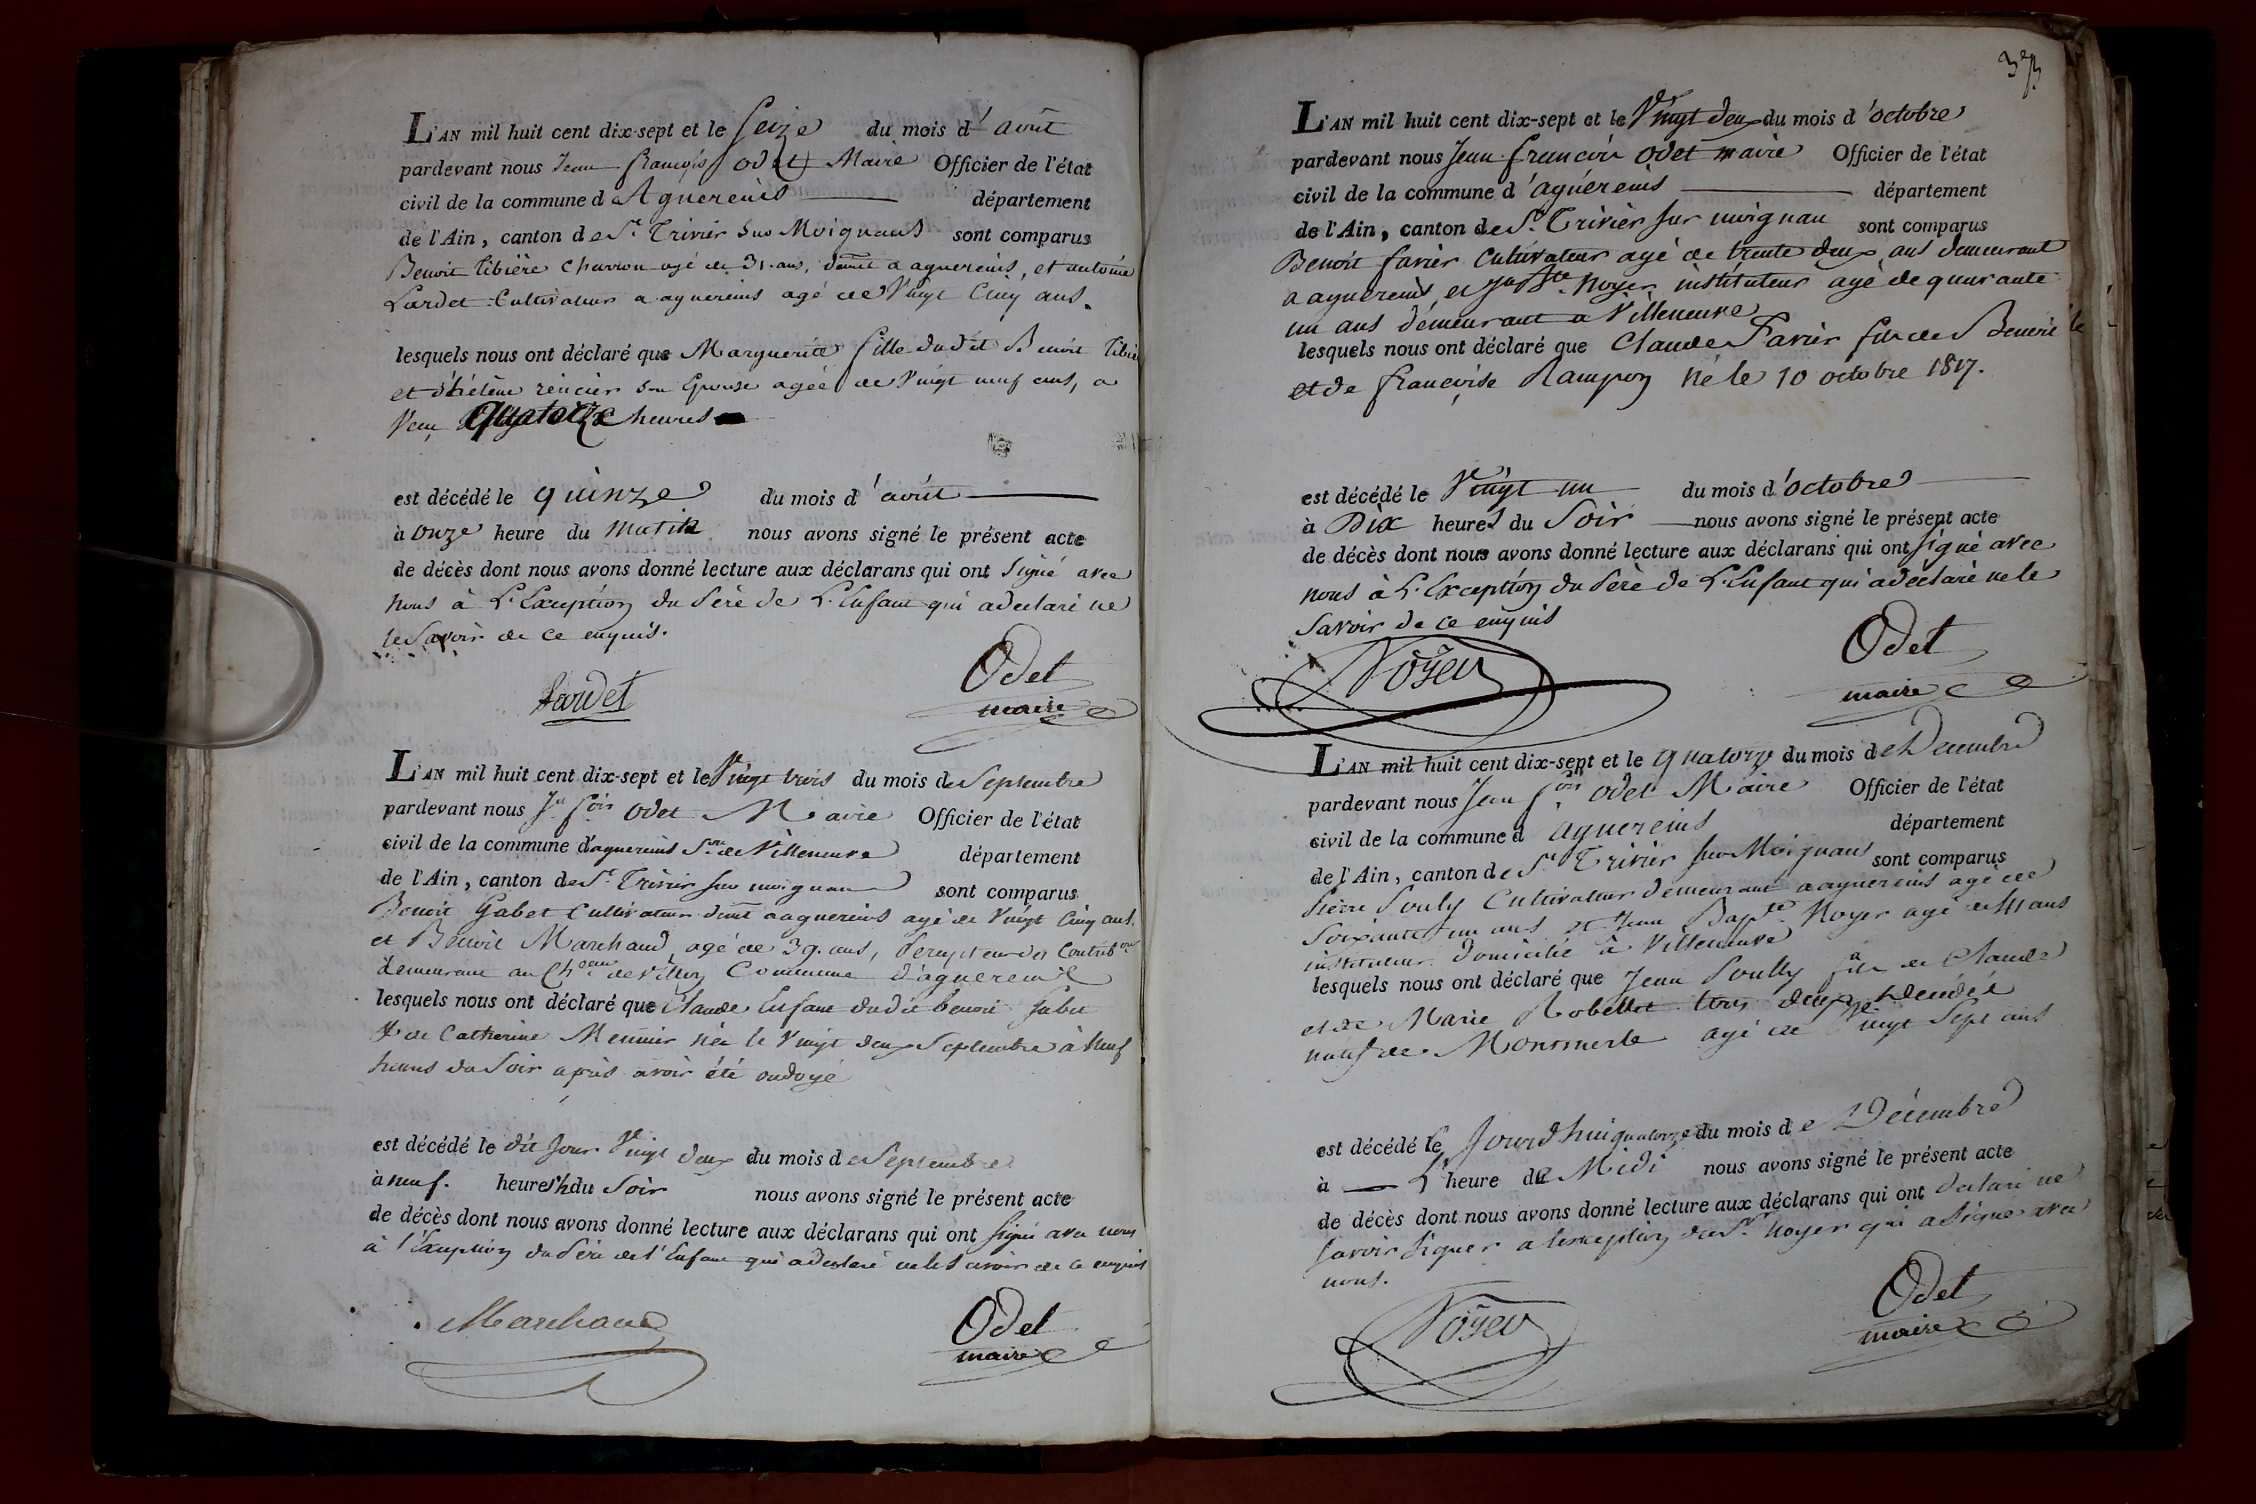 L'AN mil huit cent dix-sept et le Seize du mois d'août
pardevant nous Jean françois odet Maire Officier de l'état
civil de la commune d Aguereins département
de l'Ain, canton de St. Trivier Sur Moignans sont comparus
Benoit Tibière Charron agé de 31. ans, demt. a aguereins, et antoine
Lardet Cultivateur a aguereins agé de Vingt Cinq ans.
lesquels nous ont déclaré que Marguerite fille dudit Benoit
et d'hélène son Epouse agée de Vingt neuf ans, a
Veçu quatorze heures
est décédé le quinze du mois d'août
à onze heure du matin nous avons signé le présent acte
de décès dont nous avons donné lecture aux déclarans qui ont signé avec
nous à L'Exception du Père de L'Enfant qui a declaré ne
le Savoir de ce enquis.
Lardet
Odet
maire
L'AN mil huit cent dix-sept et le Vingt trois du mois de Septembre
pardevant nous Jn. fois odet Maire Officier de l'état
civil de la commune d'aguereins Son de Villeneuve département
de l'Ain, canton de St. Trivier sur moignans sont comparus
Benoit Gabet Cultivateur demt. a aguereins agé de Vingt Cinq ans.
et Benoit Marchand agé de 39. ans, Percepteur des Contribons
demeurant au Chateau de Commune d'aguereins
lesquels nous ont déclaré que Claude Enfant dudit benoit Gabet
& de Catherine Meunier née le Vingt deux Septembre à Neuf
heures du Soir après avoir été ondoyé
est décédé le dit Jour Vingt deux du mois de Septembre
à neuf. heures du Soir nous avons signé le présent acte
de décès dont nous avons donné lecture aux déclarans qui ont signé avec nous
à l'Exception du Père de l'Enfant qui a declaré ne le Savoir de ce enquis
Marchand
Odet
maire
373
L'AN mil huit cent dix-sept et le Vingt deux du mois d'octobre
pardevant nous Jean françois Odet maire Officier de l'état
civil de la commune d'aguereins département
de l'Ain, canton de St. Trivier sur moignan sont comparus
Benoit favier Cultivateur agé de trente deux ans demeurant
a aguereins et Jn Bte. Noyer instituteur agé de quarante
un ans demeurant a Villeneuve
lesquels nous ont déclaré que Claude Favier fils de Benoit
et de françoise Rampon Né le 10 octobre 1817.
est décédé le Vingt un du mois d'octobre
à Dix heures du Soir nous avons signé le présent acte
de décès dont nous avons donné lecture aux déclarans qui ont signé avec
nous à L'Exception du Père de L'Enfant qui a declaré ne le
Savoir de ce enquis
Noyer
Odet
maire
L'AN mil huit cent dix-sept et le quatorze du mois de Decembre
pardevant nous Jean fois odet Maire Officier de l'état
civil de la commune d aguereins département
de l'Ain, canton de St. Trivier sur Moignans sont comparus
Pierre Pouly Cultivateur demeurant a aguereins agé de
Soixante un ans et Jean Bapte. Noyer agé de 41 ans
instituteur domicilié à Villeneuve
lesquels nous ont déclaré que Jean Poully fils de Claude
et de Marie Robellet tous deux décédés
natif de Montmerle agé de Vingt Sept ans
est décédé le Jourd'hui quatorze du mois de Décembre
à L'heure de Midi nous avons signé le présent acte
de décès dont nous avons donné lecture aux déclarans qui ont declaré ne
savoir signer a l'exception du Sr. Noyer qui a Signé avec
nous.
Noyer
Odet
maire